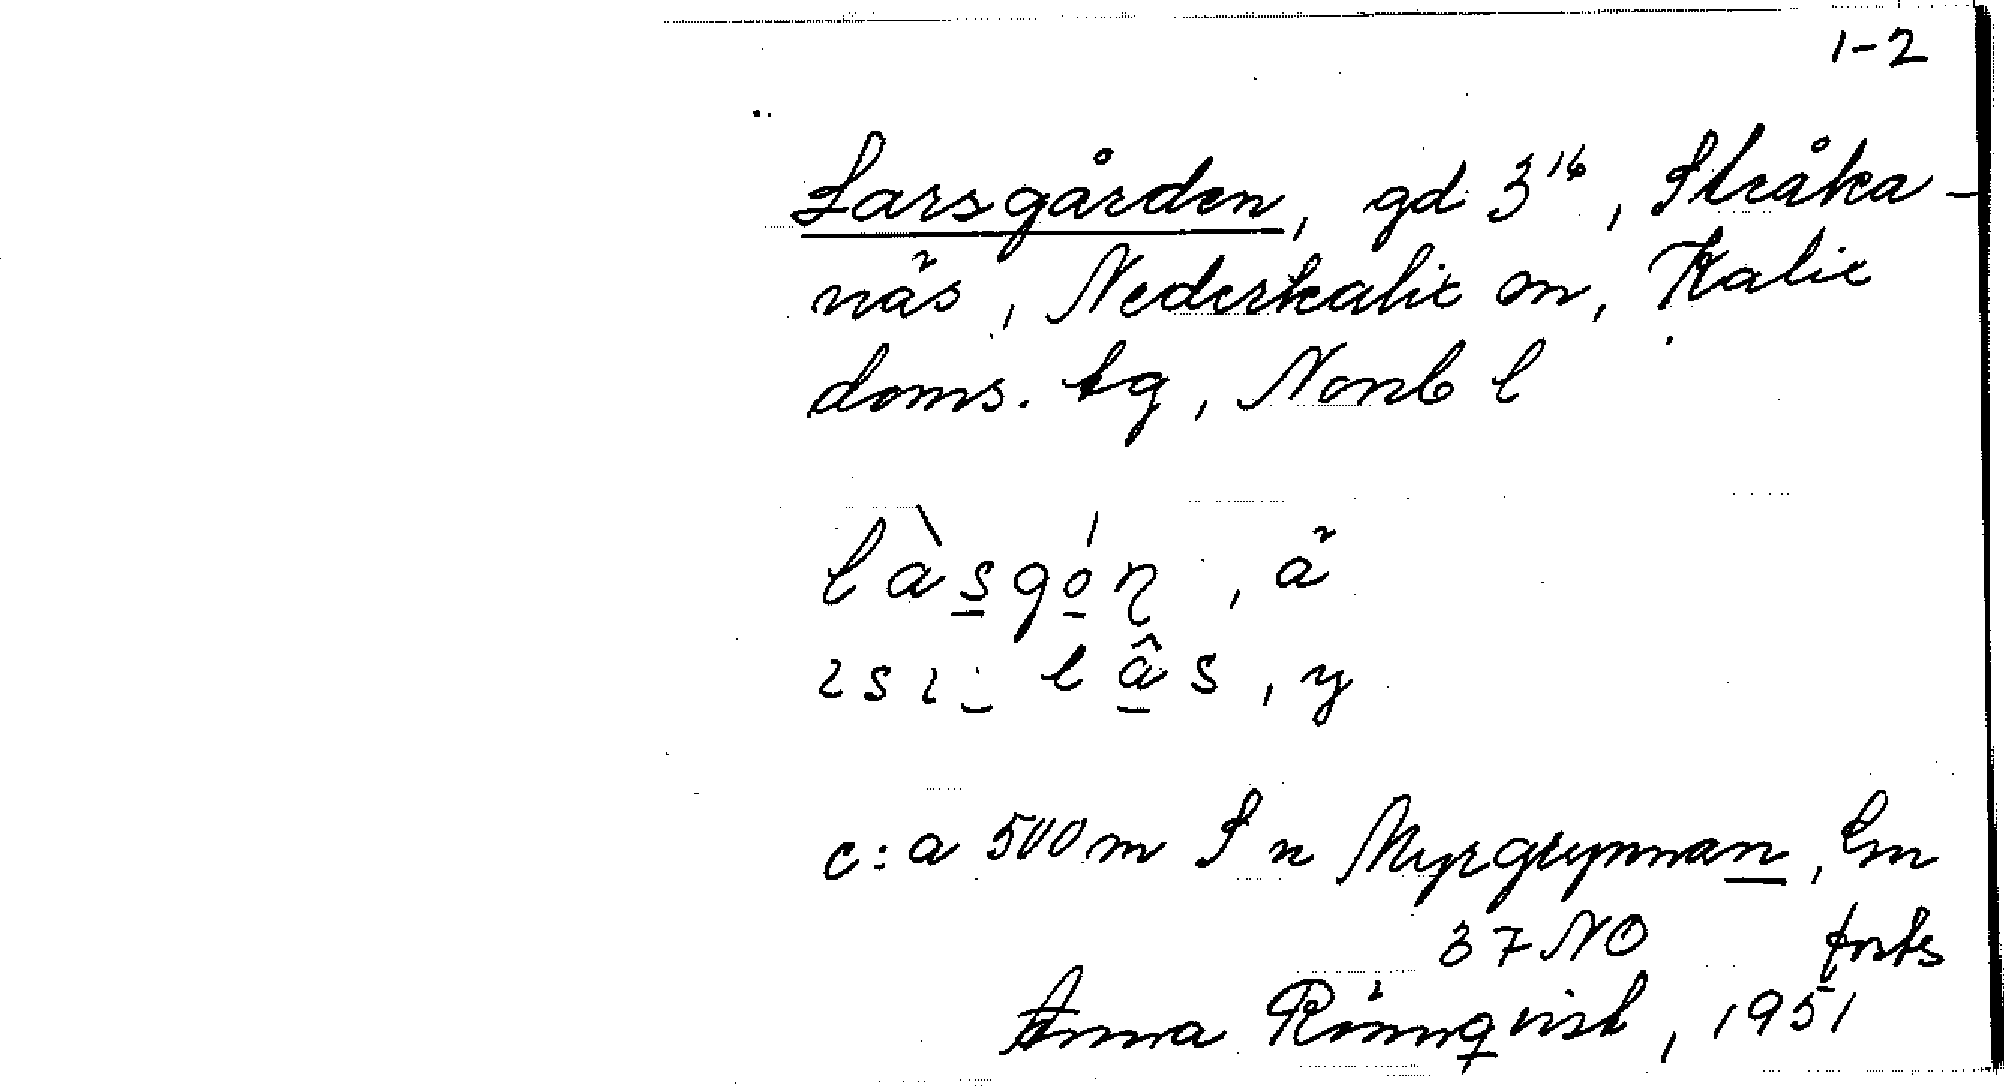 1-2
Larsgården, gd 3¹⁶, Stråka-
näs, Nederkalix sn, Kalix
doms. tg, Norrb l
làsgó̱n, ä
lâ̱s, y
c:a 500 m S n Myrgrynnan, Em
37 NO forts
Anna Rönnqvist, 1951